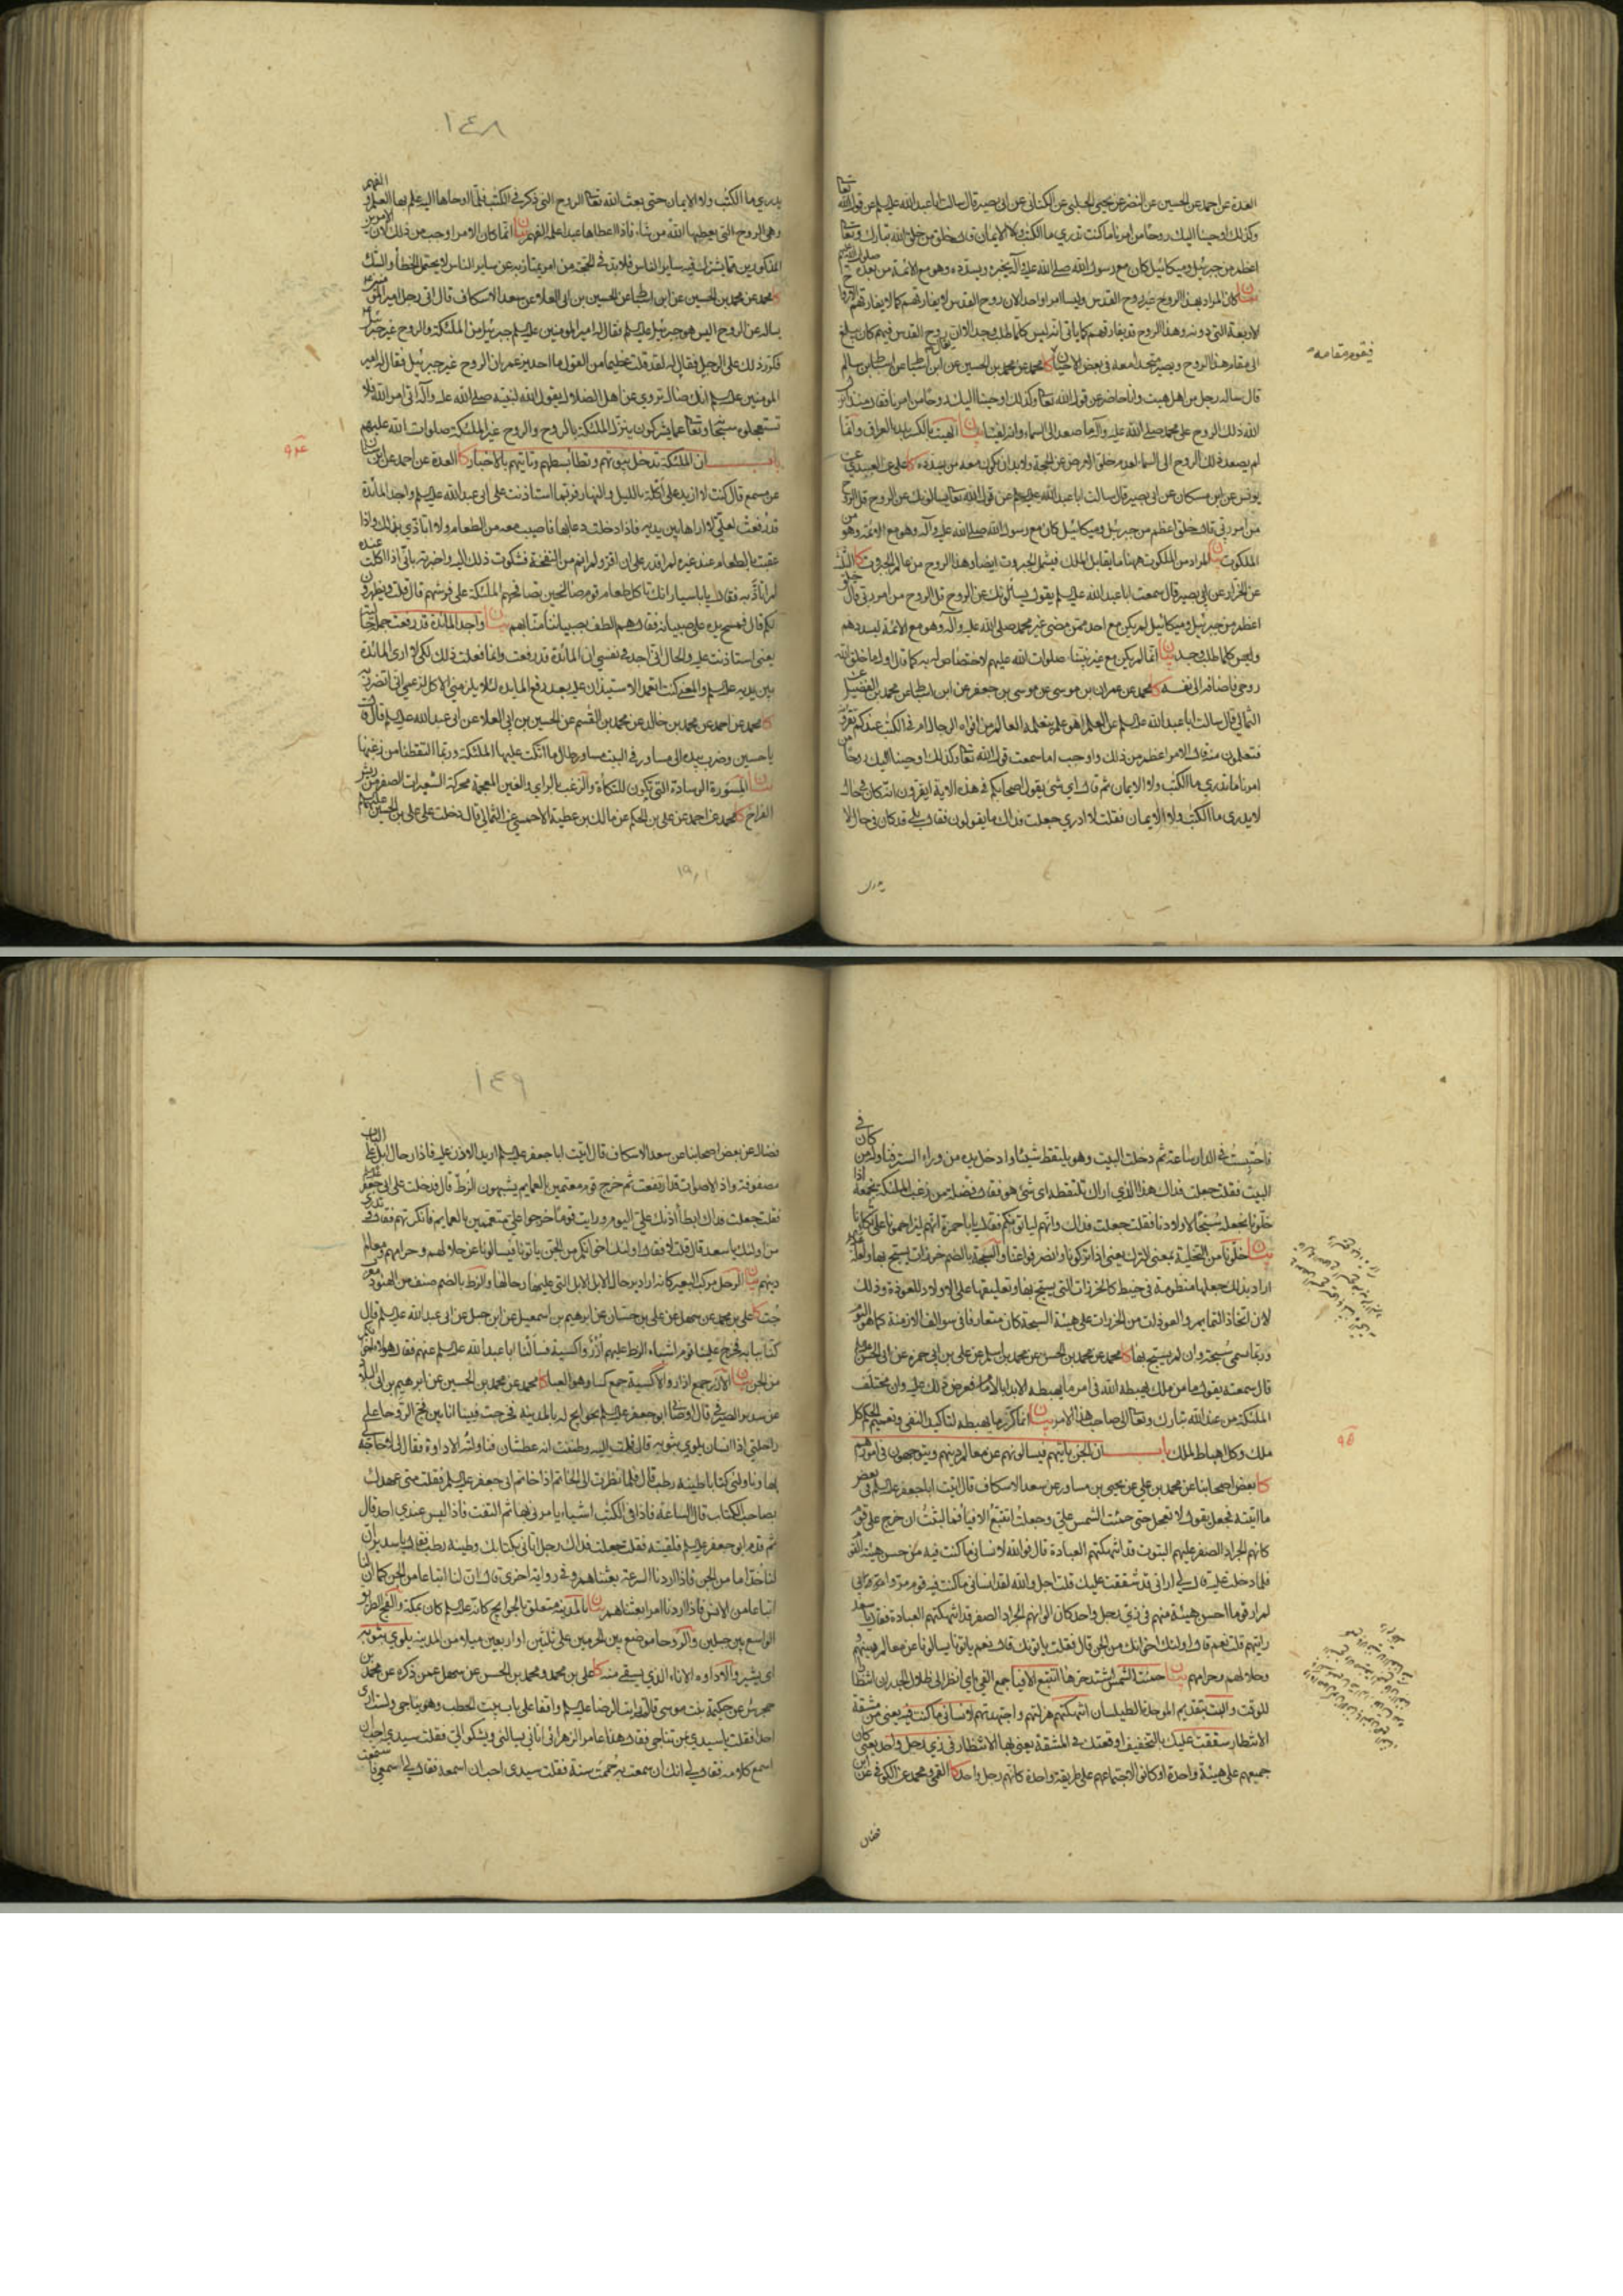 العدة عن احمد عن الحسين عن النضر عن يحيى الحلبي عن الكناني عن ابي بصير قال سالت ابا عبد الله عليه السلم عن قول الله تعا
وكذلك اوحينا اليك روحا من امرنا ما كنت تدري ما الكتب ولا الايمان قال خلق من خلق الله تبارك وتعا
اعظم من جبرئيل وميكائيل كان مع رسول الله صلى الله عليه وآله يخبره ويسدده وهو مع الائمة من بعده
بيان كان المراد بهذا الروح غير روح القدس وليسا امرا واحدا لان روح القدس لا يفارقهم كما لا يفارقهم الارواح
الاربعة التي دونه وهذا الروح قد يفارقهم كما ياتي انه ليس كلما طلب وجد
الى مقام هذا الروح ويصير متحدا معه في بعض الاحيان كا محمد عن محمد بن الحسين عن ابن اسباط عن اسباط بن سالم
قال ساله رجل من اهل هيت وانا حاضر عن قول الله تعا وكذلك اوحينا اليك روحا من امرنا فقال منذ انزل
الله ذلك الروح على محمد صلى الله عليه وآله ما صعد الى السماء وانه لفينا بيان الهيت بالكسر بلد بالعراق وانما
لم يصعد ذلك الروح الى السماء لعدم خلق الارض عن الحجة ولا بد ان يكون معه من يسدده كا علي عن العبيدي عن
يونس عن ابن مسكان عن ابي بصير قال سالت ابا عبد الله عليه السلم عن قول الله تعا يسالونك عن الروح قل الروح
من امر ربي قال خلق اعظم من جبرئيل وميكائيل كان مع رسول الله صلى الله عليه وآله وهو مع الائمة وهو من
الملكوت بيان المراد من الملكوت ههنا ما يقابل الملك فيشمل الجبروت ايضا وهذا الروح من عالم الجبروت كا الثلثة
عن الخزاز عن ابي بصير قال سمعت ابا عبد الله عليه السلم يقول يسألونك عن الروح قل الروح من امر ربي قال خلق
اعظم من جبرئيل وميكائيل لم يكن مع احد ممن مضى غير محمد صلى الله عليه وآله وهو مع الائمة يسددهم
وليس كلما طلب وجد بيان انما لم يكن مع غير نبينا صلوات الله عليهم لاختصاصه به كما قال اول ما خلق الله
روحي فاضافه الى نفسه كا محمد عن عمران بن موسى عن موسى بن جعفر عن ابن اسباط عن محمد بن الفضيل عن
الثمالي قال سالت ابا عبد الله عليه السلم عن العلم اهو علم يتعلمه العالم من افواه الرجال ام في الكتب عندكم تقرؤنه
فتعلمون منه قال الامر اعظم من ذلك واوجب اما سمعت قول الله تعا وكذلك اوحينا اليك روحا من
امرنا ما تدري ما الكتب ولا الايمان ثم قال اي شئ يقول اصحابكم في هذه الاية ايقرون انه كان في حال
لا يدري ما الكتب ولا الايمان فقلت لا ادري جعلت فداك ما يقولون فقال بلى قد كان في حال لا
فيقوم مقامه
يدري
١٤٨
يدري ما الكتب ولا الايمان حتى بعث الله تعا الروح التي ذكر في الكتب فلما اوحاها اليه علم بها العلم والفهم
وهي الروح التي يعطيها الله من شاء فاذا اعطاها عبدا علمه الفهم بيان انما كان الامر اوجب من ذلك لان الامرين
المذكورين مما يشترك فيه ساير الناس فلا بد في الحجة من امر يمتاز به عن ساير الناس لا يحتمل الخطأ والشك
كا محمد عن محمد بن الحسين عن ابن اسباط عن الحسين بن ابي العلاء عن سعد الاسكاف قال اتى رجل امير المؤمنين
يساله عن الروح اليس هو جبرئيل عليه السلم فقال له امير المومنين عليه السلم جبرئيل من الملئكة والروح غير جبرئيل
فكرر ذلك على الرجل فقال له لقد قلت عظيما من القول ما احد يزعم ان الروح غير جبرئيل فقال له امير
المومنين عليه السلم انك ضال تروي عن اهل الضلال يقول الله لنبيه صلى الله عليه وآله اتى امر الله فلا
تستعجلوه سبحانه وتعا عما يشركون ينزل الملئكة بالروح والروح غير الملئكة صلوات الله عليهم
باب ان الملئكة تدخل بيوتهم وتطأ بسطهم وتاتيهم بالاخبار كا العدة عن احمد عن ابن سنان
عن مسمع قال كنت لا ازيد على اكلة بالليل والنهار فربما استاذنت على ابي عبد الله عليه السلم واجد المائدة
قد رفعت لعلي لا اراها بين يديه فاذا دخلت دعا بها فاصيب معه من الطعام ولا اتاذى بذلك واذا
عقبت بالطعام عند غيره لم اقدر على ان اقر ولم انم من النفخة فشكوت ذلك اليه واخبرته باني اذا اكلت عنده
لم اتاذ به فقال يا ابا سيار انك تاكل طعام قوم صالحين تصافحهم الملئكة على فرشهم قال قلت ويظهرون
لكم قال فمسح يده على بعض صبيانه فقال هم الطف بصبياننا منا بهم بيان واجد المائدة قد رفعت جملة حالية
يعني استاذنت عليه والحال اني اجد في نفسي ان المائدة قد رفعت وانما فعلت ذلك لكي لا ارى المائدة
بين يديه عليه السلم والمعنى كنت اتعمد الاستيذان عليه بعد رفع المايدة لئلا يلزمني الاكل لزعمي اني اتضرر به
كا محمد عن احمد عن محمد بن خالد عن محمد بن القسم عن الحسين بن ابي العلاء عن ابي عبد الله عليه السلم قال قال
يا حسين وضرب بيده الى مساور في البيت مساور طال ما اتكت عليها الملئكة وربما التقطنا من زغبها
بيان المسورة الوسادة التي تكون للتكأة والزغب بالزاي والغين المعجمة محركة الشعيرات الصفر من ريش
الفراخ كا محمد عن احمد عن علي بن الحكم عن مالك بن عطية الاحمسي عن الثمالي قال دخلت على علي بن الحسين عليهما
فاحتبست في الدار ساعة ثم دخلت البيت وهو يلتقط شيئا وادخل يده من وراء الستر فناوله من كان في
البيت فقلت جعلت فداك هذا الذي اراك تلتقطه اي شئ هو فقال فضلة من زغب الملئكة نجمعه اذا
خلونا نجعله سبحا لاولادنا فقلت جعلت فداك وانهم لياتونكم فقال يا ابا حمزة انهم ليزاحمونا على تكأتنا
بيان خلونا من التخلية بمعنى الترك يعني اذا تركونا وانصرفوا عنا والسبحة بالضم خرزات يسبح بها ولعله عليه
اراد بذلك جعلها منظومة في خيط كالخرزات التي يسبح بها وتعليقها على الاولاد للعوذة وذلك
لان اتخاذ التمايم والعوذات من الخرزات على هيئة السبحة كان متعارفا في سوالف الازمنة كما هو اليوم
وربما تسمى سبحة وان لم يسبح بها كا محمد عن محمد بن الحسن عن محمد بن اسلم عن علي بن ابي حمزة عن ابي الحسن عليه السلم
قال سمعته يقول ما من ملك يهبطه الله في امر ما يهبطه الا بدا بالامام فعرض ذلك عليه وان مختلف
الملئكة من عند الله تبارك وتعالى الى صاحب هذا الامر بيان انما كرر ما يهبطه لتاكيد النفي وتعميم الحكم لكل
ملك وكل اهباط لملك باب ان الجن ياتيهم فيسالونهم عن معالم دينهم ويتوجهون في امورهم
كا بعض اصحابنا عن محمد بن علي عن يحيى بن مساور عن سعد الاسكاف قال اتيت ابا جعفر عليه السلم في بعض
ما اتيته فجعل يقول لا تعجل حتى حميت الشمس علي وجعلت اتتبع الافياء فما لبثت ان خرج علي قوم
كانهم الجراد الصفر عليهم البتوت قد انتهكتهم العبادة قال فوالله لانساني ما كنت فيه من حسن هيئة القوم
فلما دخلت عليه قال لي اراني قد شققت عليك قلت اجل والله لقد انساني ما كنت فيه قوم مروا بي
لم ار قوما احسن هيئة منهم في زي رجل واحد كان الوانهم الجراد الصفر قد انتهكتهم العبادة فقال يا سعد
رايتهم قلت نعم قال اولئك اخوانك من الجن قال فقلت ياتونك قال نعم ياتونا يسالونا عن معالم دينهم
وحلالهم وحرامهم بيان حميت الشمس اشتد حرها اتتبع الافياء جمع الفئ اي انظر الى ظلال الجدران انتظارا
للوقت والبت بتقديم الموحدة الطيلسان انتهكتهم هزلتهم واجتهدتهم لانساني ما كنت فيه يعني من مشقة
الانتظار شققت عليك بالتخفيف اوقعتك في المشقة يعني بها الانتظار في زي رجل واحد يعني كان
جميعهم على هيئة واحدة او كانوا لاجتماعهم على طريقة واحدة كانهم رجل واحد كا القمي ومحمد عن الكوفي عن ابن
فضال
١٤٩
فضال عن بعض اصحابنا عن سعد الاسكاف قال اتيت ابا جعفر عليه السلم اريد الاذن عليه فاذا رحال ابل على الباب
مصفوفة واذا الاصوات قد ارتفعت ثم خرج قوم معتمين بالعمايم يشبهون الزط قال فدخلت على ابي جعفر
فقلت جعلت فداك ابطأ اذنك علي اليوم ورايت قوما خرجوا علي متعممين بالعمايم فانكرتهم فقال تدري
من اولئك يا سعد قال قلت لا فقال اولئك اخوانكم من الجن ياتونا فيسالونا عن حلالهم وحرامهم ومعالم
دينهم بيان الرحل مركب البعير كانه اراد برحال الابل الابل التي عليها رحالها والزط بالضم صنف من الهنود معرب
جت كا علي بن محمد عن سهل عن علي بن حسان عن ابرهيم بن اسمعيل عن ابن جبل عن ابي عبد الله عليه السلم قال
كنا ببابه فخرج علينا قوم اشباه الزط عليهم ازر واكسية فسألنا ابا عبد الله عليه السلم عنهم فقال هؤلاء اخوانكم
من الجن بيان الازر جمع ازار والاكسية جمع كساء وهو العباء كا محمد عن محمد بن الحسين عن ابرهيم بن ابي البلاد
عن سدير الصيرفي قال اوصاني ابو جعفر عليه السلم بحوايج له بالمدينة فخرجت فبينا انا بين فج الروحاء على
راحلتي اذا انسان يلوي بثوبه قال فملت اليه وظننت انه عطشان فناولته الاداوة فقال لي لا حاجة لي
بها وناولني كتابا طينه رطب قال فلما نظرت الى الخاتم اذا خاتم ابي جعفر عليه السلم فقلت متى عهدك
بصاحب الكتاب قال الساعة فاذا في الكتب اشياء يامرني بها ثم التفت فاذا ليس عندي احد قال
ثم قدم ابو جعفر عليه السلم فلقيته فقلت جعلت فداك رجل اتاني بكتابك وطينه رطب فقال يا سدير ان
لنا خدما من الجن فاذا اردنا السرعة بعثناهم وفي رواية اخرى قال ان لنا اتباعا من الجن كما ان لنا
اتباعا من الانس فاذا اردنا امرا بعثناهم بيان بالمدينة متعلق بالحوايج كانه عليه السلم كان بمكة والفج الطريق
الواسع بين جبلين والروحاء موضع بين الحرمين على ثلثين او اربعين ميلا من المدينة يلوي بثوبه
اي يشير والاداوة الاناء الذي يسقى منه كا علي بن محمد ومحمد بن الحسن عن سهل عمن ذكره عن محمد بن
جحرش عن حكيمة بنت موسى قالت رايت الرضا عليه السلم واقفا على باب بيت الحطب وهو يناجي ولست ارى
احدا فقلت يا سيدي من تناجي فقال هذا عامر الزهرائي اتاني يسالني ويشكو الي فقلت سيدي احب ان
اسمع كلامه فقال لي انك ان سمعت به حممت سنة فقلت سيدي احب ان اسمعه فقال لي اسمعي فاستمعت